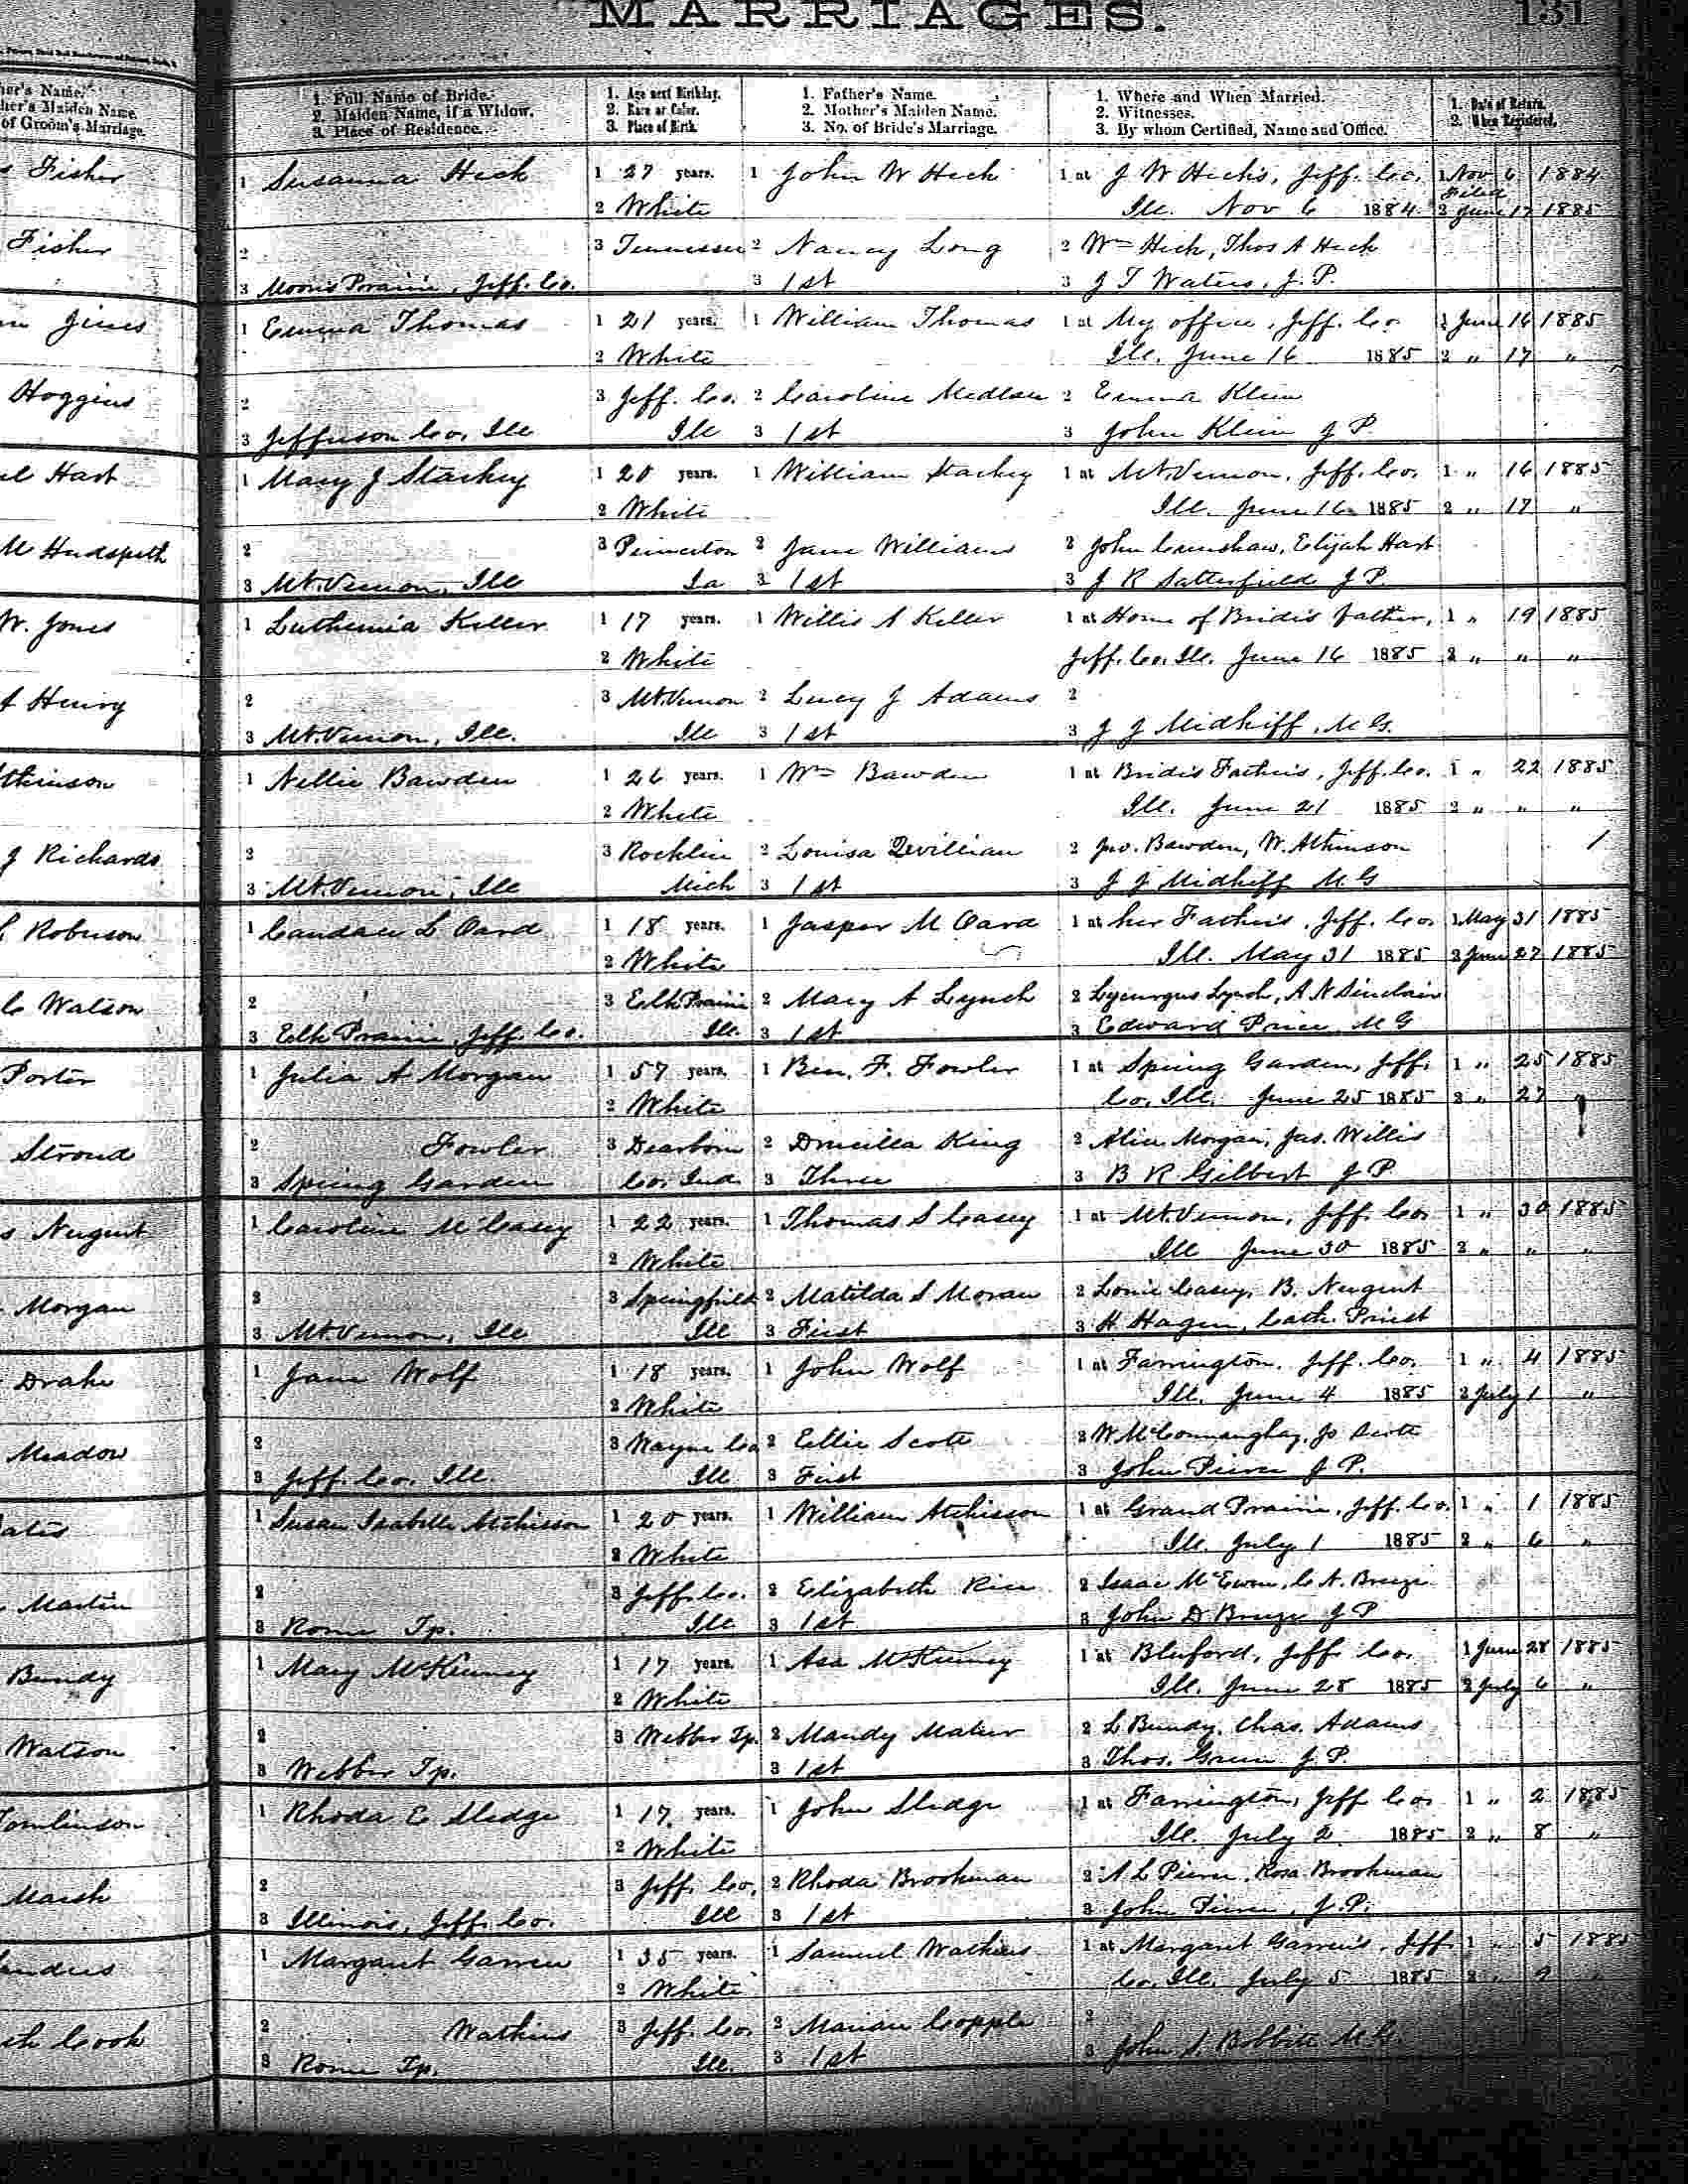 MARRIAGES. 131
her's Name. 1. Full Name of Bride. 1. Age next Birthday. 1. Father's Name. 1. Where and When Married. 1. Date of Return.
her's Maiden Name. 2. Maiden Name, if a Widow. 2. Race or Color. 2. Mother's Maiden Name. 2. Witnesses. 2. When Registered.
of Groom's Marriage. 3. Place of Residence. 3. Place of Birth. 3. No. of Bride's Marriage. 3. By whom Certified, Name and Office.
Fisher 1 Susanna Heck 1 27 years. 1 John W Heck 1 at J W Heck's, Jeff. Co. 1 Nov 6 1884
2 White Ill. Nov 6 1884 Filed 2 June 17 1885
Fisher 2 3 Tennessee 2 Nancy Long 2 Wm Heck, Thos A Heck
3 Moores Prairie, Jeff. Co. 3 1st 3 J T Waters, J. P.
1 Emma Thomas 1 21 years. 1 William Thomas 1 at My office, Jeff. Co. 1 June 16 1885
2 White Ill. June 16 1885 2 " 17 "
Hoggins 2 3 Jeff. Co. 2 Caroline 2 Emma Klein
3 Jefferson Co. Ill Ill 3 1st 3 John Klein J P.
Hart 1 Mary J Starkey 1 20 years. 1 William Starkey 1 at Mt. Vernon, Jeff. Co. 1 " 16 1885
2 White Ill. June 16 1885 2 " 17 "
Hudspeth 2 3 Princeton 2 Jane Williams 2 John Crenshaw, Elijah Hart
3 Mt. Vernon, Ill Ia 3 1st 3 J R Satterfield J P.
W. Jones 1 Luthenia Keller 1 17 years. 1 Willis A Keller 1 at Home of Bride's father, 1 " 19 1885
2 White Jeff. Co. Ill. June 16 1885 2 " " "
Henry 2 3 Mt. Vernon 2 Lucy J Adams 2
3 Mt. Vernon, Ill. Ill 3 1st 3 J J Midkiff, M G.
tkinson 1 Nellie Bawden 1 26 years. 1 Wm Bawden 1 at Bride's Father's, Jeff. Co. 1 " 22 1885
2 White Ill. June 21 1885 2 " " "
J Richards 2 3 Rocklin 2 Louisa 2 Jno. Bawden, W. Atkinson
3 Mt. Vernon, Ill Mich 3 1st 3 J J Midkiff M. G
Robinson 1 Candace L Oard 1 18 years. 1 Jasper M Oard 1 at her Father's, Jeff. Co. 1 May 31 1885
2 White Ill. May 31 1885 2 June 27 1885
C Watson 2 3 Elk Prairie 2 Mary A Lynch 2 Lycurgus Lynch, A N Sinclair
3 Elk Prairie, Jeff. Co. Ill. 3 1st 3 Edward Price M G
Porter 1 Julia A Morgan 1 57 years. 1 Ben. F. Fowler 1 at Spring Garden, Jeff. 1 " 25 1885
2 White Co. Ill. June 25 1885 2 " 27 "
Stroud 2 Fowler 3 Dearborn 2 Drucilla King 2 Alice Morgan, Jas. Willis
3 Spring Garden Co. Ind. 3 Three 3 B R Gilbert J P.
Nugent 1 Caroline M Casey 1 22 years. 1 Thomas S Casey 1 at Mt. Vernon, Jeff. Co. 1 " 30 1885
2 White Ill June 30 1885 2 " " "
Morgan 2 3 Springfield 2 Matilda S Moran 2 Louie Casey, B. Nugent
3 Mt. Vernon, Ill Ill 3 First 3 H. Hagen, Cath. Priest
Drake 1 Jane Wolf 1 18 years. 1 John Wolf 1 at Farrington, Jeff. Co. 1 " 4 1885
2 White Ill. June 4 1885 2 July 1 "
Meadow 2 3 Wayne Co 2 Ellie Scott 2 W McConnanghay, Jo Scott
3 Jeff. Co. Ill. Ill 3 First 3 John Pierce J P.
1 Susan Isabelle Atchisson 1 20 years. 1 William Atchisson 1 at Grand Prairie, Jeff. Co. 1 " 1 1885
2 White Ill. July 1 1885 2 " 6 "
Martin 2 3 Jeff. Co. 2 Elizabeth Rice 2 Isaac McEwen, C. A. Breeze
3 Rome Tp. Ill 3 1st 3 John D Breeze J P
Bundy 1 Mary McKinney 1 17 years. 1 Asa McKinney 1 at Bluford, Jeff Co. 1 June 28 1885
2 White Ill. June 28 1885 2 July 6 "
Watson 2 3 Webber Tp. 2 Mandy 2 L Bundy, Chas. Adams
3 Webber Tp. 3 1st 3 Thos. Green J P.
Tomlinson 1 Rhoda E Sledge 1 17 years. 1 John Sledge 1 at Farrington, Jeff Co. 1 " 2 1885
2 White Ill. July 2 1885 2 " 8 "
Marsh 2 3 Jeff. Co. 2 Rhoda Brookman 2 A L Pierce, Rosa Brookman
3 Illinois, Jeff. Co. Ill 3 1st 3 John Pierce, J. P.
1 Margaret Garren 1 35 years. 1 Samuel Watkins 1 at Margaret Garren's, Jeff 1 " 5 1885
2 White Co. Ill. July 5 1885 2 " 9 "
Cook 2 Watkins 3 Jeff. Co. 2 Marian Copple 2
3 Rome Tp. Ill. 3 1st 3 John S. Bobbitt M. G.